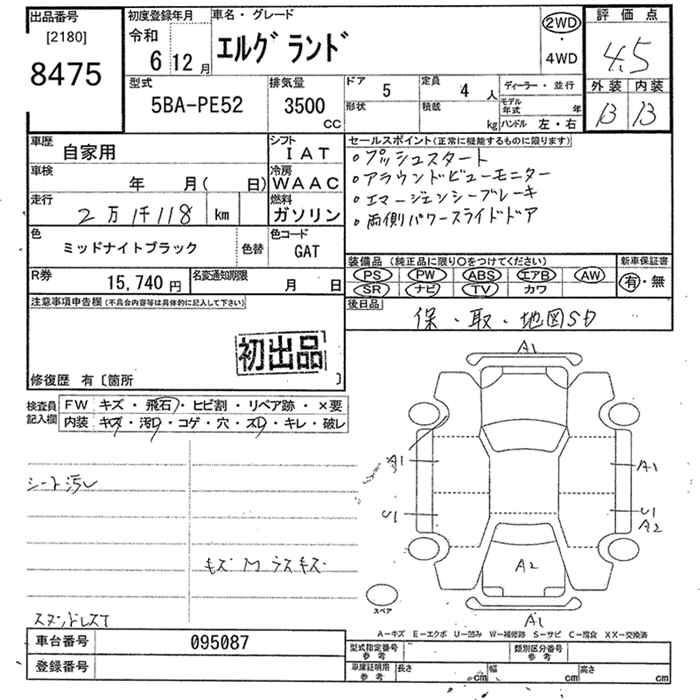 出品番号
[2180]
8475
初度登録年月
令和
6 12月
車名・グレード
エルグランド
2WD
・
4WD
評価点
4.5
外装 内装
B B
型式
5BA-PE52
排気量
3500
cc
ドア 5
形状
定員 4 人
積載 kg
ディーラー・並行
モデル年式 年
ハンドル 左・右
車歴 自家用
シフト IAT
車検 年 月( 日)
冷房 WAAC
走行 2万1千118 km
燃料 ガソリン
色 ミッドナイトブラック 色替
色コード GAT
R券 15,740円
名変通知期限 月 日
セールスポイント(正常に機能するものに限ります)
・プッシュスタート
・アラウンドビューモニター
・エマージェンシーブレーキ
・両側パワースライドドア
装備品 (純正品に限り○をつけてください)
PS PW ABS エアB AW
SR ナビ TV カワ
新車保証書
有・無
後日品
保・取・地図SD
注意事項申告欄(不具合内容等は具体的に記入して下さい)
初出品
修復歴 有〔箇所 〕
検査員記入欄
FW キズ・飛石・ヒビ割・リペア跡・×要
内装 キズ・汚レ・コゲ・穴・スレ・キレ・破レ
シート汚レ
キズ M ラスキズ
A1
A1
A1
U1
U1
A2
A2
A1
スペア
A-キズ E-エクボ U-凹み W-補修跡 S-サビ C-腐食 XX-交換済
車台番号 095087
登録番号
型式指定番号 参考
類別区分番号 参考
車庫証明用 参考
長さ cm
幅 cm
高さ cm